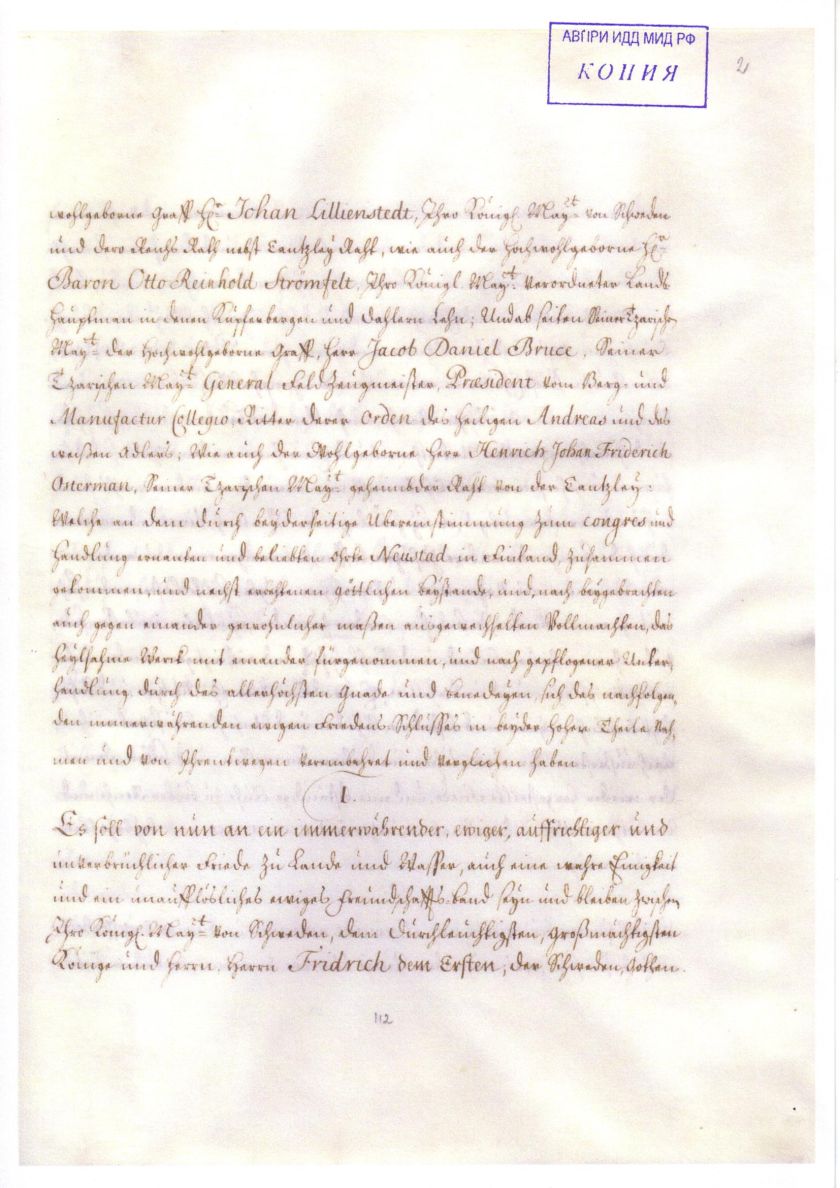 АВПРИ ИДД МИД РФ
КОПИЯ
2
wohlgeborne Graff Hr. Johan Lillienstedt, Ihro Königl. Mayt. von Schweden
und dero Reichs Rath nebst Cantzley Raht, wie auch der Hochwohlgeborne Hr.
Baron Otto Reinhold Strömfelt, Ihro Königl. Mayt. Verordneter Lands
Hauptman in denen Kupferbergen und Dahlern Lehn; Und ab seiten Seiner Tzarischen
Mayt. der Hochwohlgeborne Graff, Herr Jacob Daniel Bruce, Seiner
Tzarischen Mayt. General Feld Zeugmeister, Præsident vom Berg- und
Manufactur Collegio, Ritter derer Orden des Heiligen Andreas und des
weißen Adlers; Wie auch der Wohlgeborne Herr Henrich Johan Friderich
Osterman, Seiner Tzarischen Mayt. geheimbder Raht von der Cantzley:
Welche an dem durch beyderseitige Übereinstimmung zum Congres und
Handlung ernanten und beliebten Ohrte Neustad in Finland, zusammen
gekommen, und nechst erbehtenen Göttlichen Beystande, und, nach beygebrachten
auch gegen einander gewöhnlicher maßen ausgewechselten Vollmachten, das
Heylsahme Werck mit einander fürgenommen, und nach gepflogener Unter-
handlung durch des allerhöchsten Gnade und Benedeyen, sich des nachfolgen-
den immerwährenden ewigen Friedens Schlusses in beyder hoher Theile Nah-
men und von Ihrentwegen vereinbahret und verglichen haben
I.
Es soll von nun an ein immerwährender, ewiger, auffrichtiger und
unverbrüchlicher Friede zu Lande und Wasser, auch eine wahre Einigkeit
und ein unaufflösliches ewiges Freundschaffts-Band seyn und bleiben zwischen
Ihro Königl. Mayt. von Schweden, dem Durchleuchtigsten, Großmächtigsten
Könige und Herrn, Herrn Fridrich dem Ersten, der Schweden, Gothen
112